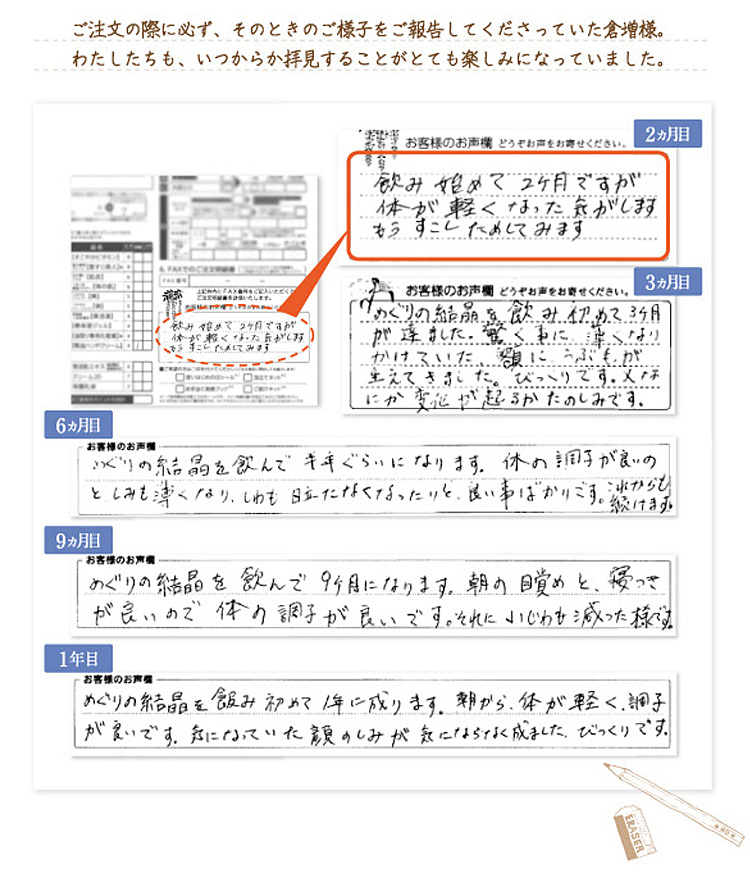 ご注文の際に必ず、そのときのご様子をご報告してくださっていた倉増様。
わたしたちも、いつからか拝見することがとても楽しみになっていました。
2ヵ月目
お客様のお声欄 どうぞお声をお寄せください。
飲み始めて2ケ月ですが
体が軽くなった気がします
もうすこしためしてみます
6. FAXでのご注文明細書
FAX番号
飲み始めて2ケ月ですが
体が軽くなった気がします
もうすこしためしてみます
3ヵ月目
お客様のお声欄 どうぞお声をお寄せください。
めぐりの結晶を飲み初めて3ケ月
が達ました。驚く事に、薄くなり
かけていた、額に、うぶ毛が
生えてきました。びっくりです。又な
にか変化が起るかたのしみです。
6ヵ月目
お客様のお声欄
めぐりの結晶を飲んで半年ぐらいになります。体の調子が良いの
としみも薄くなり、しわも目立たなくなったりと、良い事ばかりです。これからも
続けます。
9ヵ月目
お客様のお声欄
めぐりの結晶を飲んで9ケ月になります。朝の目覚めと、寝つき
が良いので体の調子が良いです。それに小じわも減った様です。
1年目
お客様のお声欄
めぐりの結晶を飲み初めて1年に成ります。朝から、体が軽く、調子
が良いです。気になっていた顔のしみが気にならなく成ました、びっくりです。
ERASER